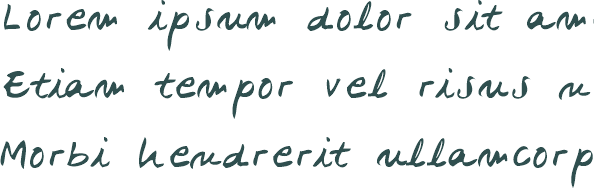 Lorem ipsum dolor sit am
Etiam tempor vel risus u
Morbi hendrerit ullamcorp